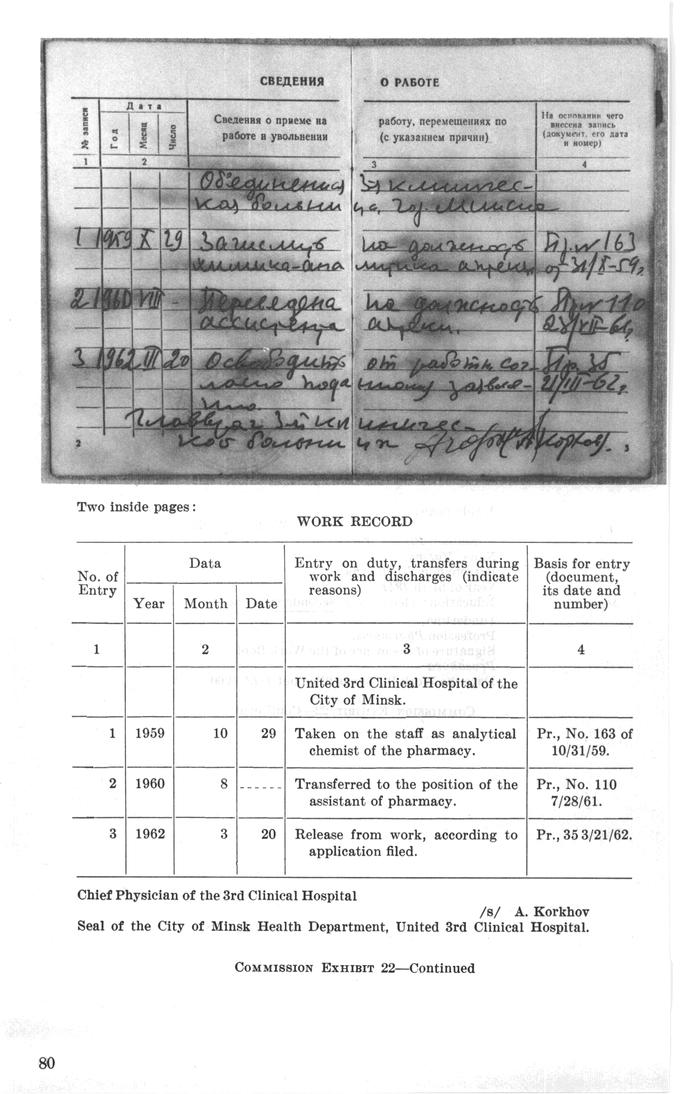 СВЕДЕНИЯ О РАБОТЕ
№ записи
Дата
Год
Месяц
Число
Сведения о приеме на работу, перемещениях по
работе и увольнении (с указанием причин)
На основании чего
внесена запись
(документ, его дата
и номер)
1 2 3 4
Объединения 3я клиничес-
кая больница, гор. Минска
1 1959 X 29 Зачислить на должность Пр. № 163
химика-аналитика аптеки от 31/X-59г.
2 1960 VIII - Переведена на должность Пр № 110
ассистента аптеки.
3 1962 III 20 Освободить от работы сог- Пр 35
ласно поданному заявле- 21/III-62г.
нию.
Главврач 3й клиничес-
кой больницы
2 3
Two inside pages:
WORK RECORD
No. of
Entry
Data
Year Month Date
Entry on duty, transfers during
work and discharges (indicate
reasons)
Basis for entry
(document,
its date and
number)
1 2 3 4
United 3rd Clinical Hospital of the
City of Minsk.
1 1959 10 29 Taken on the staff as analytical Pr., No. 163 of
chemist of the pharmacy. 10/31/59.
2 1960 8 ------ Transferred to the position of the Pr., No. 110
assistant of pharmacy. 7/28/61.
3 1962 3 20 Release from work, according to Pr., 35 3/21/62.
application filed.
Chief Physician of the 3rd Clinical Hospital
/s/ A. Korkhov
Seal of the City of Minsk Health Department, United 3rd Clinical Hospital.
COMMISSION EXHIBIT 22—Continued
80